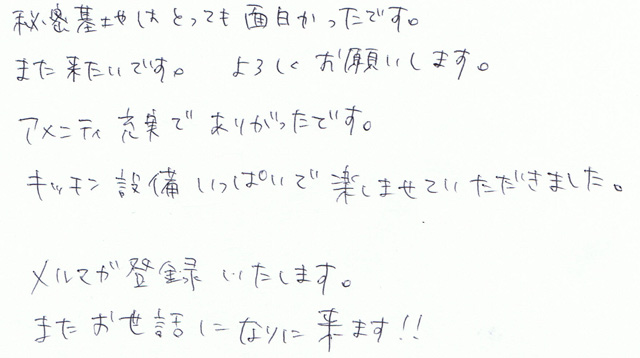 秘密基地はとっても面白かったです。
また来たいです。 よろしくお願いします。
アメニティ充実でありがたかったです。
キッチン設備いっぱいで楽しませていただきました。
メルマガ登録いたします。
またお世話になりに来ます!!